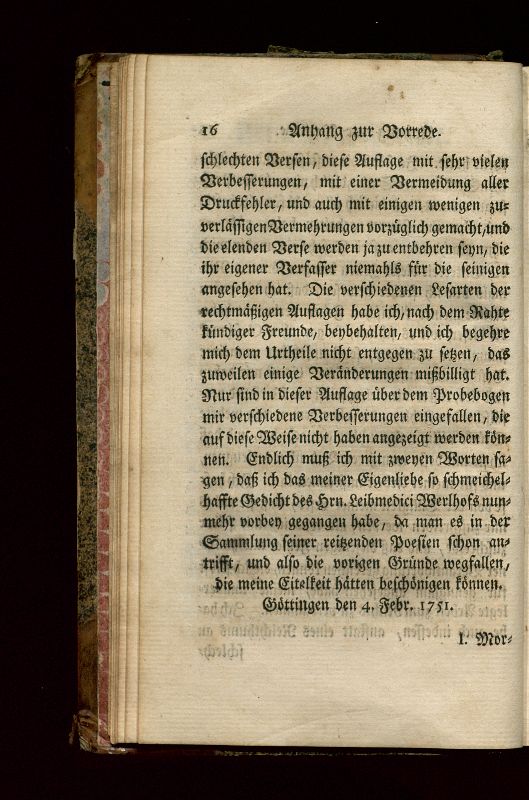 16 Anhang zur Vorrede.
schlechten Versen, diese Auflage mit sehr vielen
Verbesserungen, mit einer Vermeidung aller
Druckfehler, und auch mit einigen wenigen zu⸗
verlässigen Vermehrungen vorzüglich gemacht, und
die elenden Verse werden ja zu entbehren seyn, die
ihr eigener Verfasser niemahls für die seinigen
angesehen hat. Die verschiedenen Lesarten der
rechtmäßigen Auflagen habe ich, nach dem Rahte
kündiger Freunde, beybehalten, und ich begehre
mich dem Urtheile nicht entgegen zu setzen, das
zuweilen einige Veränderungen mißbilligt hat.
Nur sind in dieser Auflage über dem Probebogen
mir verschiedene Verbesserungen eingefallen, die
auf diese Weise nicht haben angezeigt werden kön⸗
nen. Endlich muß ich mit zweyen Worten sa⸗
gen, daß ich das meiner Eigenliebe so schmeichel⸗
haffte Gedicht des Hrn. Leibmedici Werlhofs nun⸗
mehr vorbey gegangen habe, da man es in der
Sammlung seiner reitzenden Poesien schon an⸗
trifft, und also die vorigen Gründe wegfallen,
die meine Eitelkeit hätten beschönigen können.
Göttingen den 4. Febr. 1751.
I. Mor⸗